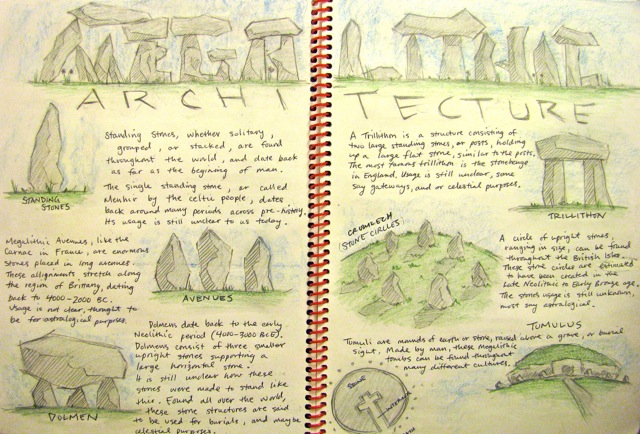 MEGA LITHIC
ARCHITECTURE
STANDING STONES
Standing Stones, whether solitary,
grouped, or stacked, are found
throughout the world, and date back
as far as the beginning of man.
The single standing stone, or called
Menhir by the celtic people, dates
back around many periods across pre-history.
Its usage is still unclear to us today.
Megalithic Avenues, like the
Carnac in France, are enormous
stones placed in long avenues.
These alignments stretch along
the region of Brittany, dating
back to 4000-2000 BC.
Usage is not clear, thought to
be for astrological purposes.
AVENUES
Dolmens date back to the early
Neolithic period (4000-3000 BCE).
Dolmens consist of three smaller
upright stones supporting a
large horizontal stone.
It is still unclear how these
stones were made to stand like
this. Found all over the world,
these stone structures are said
to be used for burials, and maybe
celestial purposes.
DOLMEN
A Trillithon is a structure consisting of
two large standing stones, or posts, holding
up a large flat stone, similar to the posts.
The most famous trillithon is the stonehenge
in England. Usage is still unclear, some
say gateways, and or celestial purposes.
TRILLITHON
CROMLECH
STONE CIRCLES
A circle of upright stones,
ranging in size, can be found
throughout the British Isles.
These stone circles are estimated
to have been created in the
Late Neolithic to Early Bronze age.
The stones usage is still unknown,
most say astrological.
TUMULUS
Tumuli are mounds of earth or stone, raised above a grave, or burial
sight. Made by man, these megalithic
tombs can be found throughout
many different cultures.
STONE